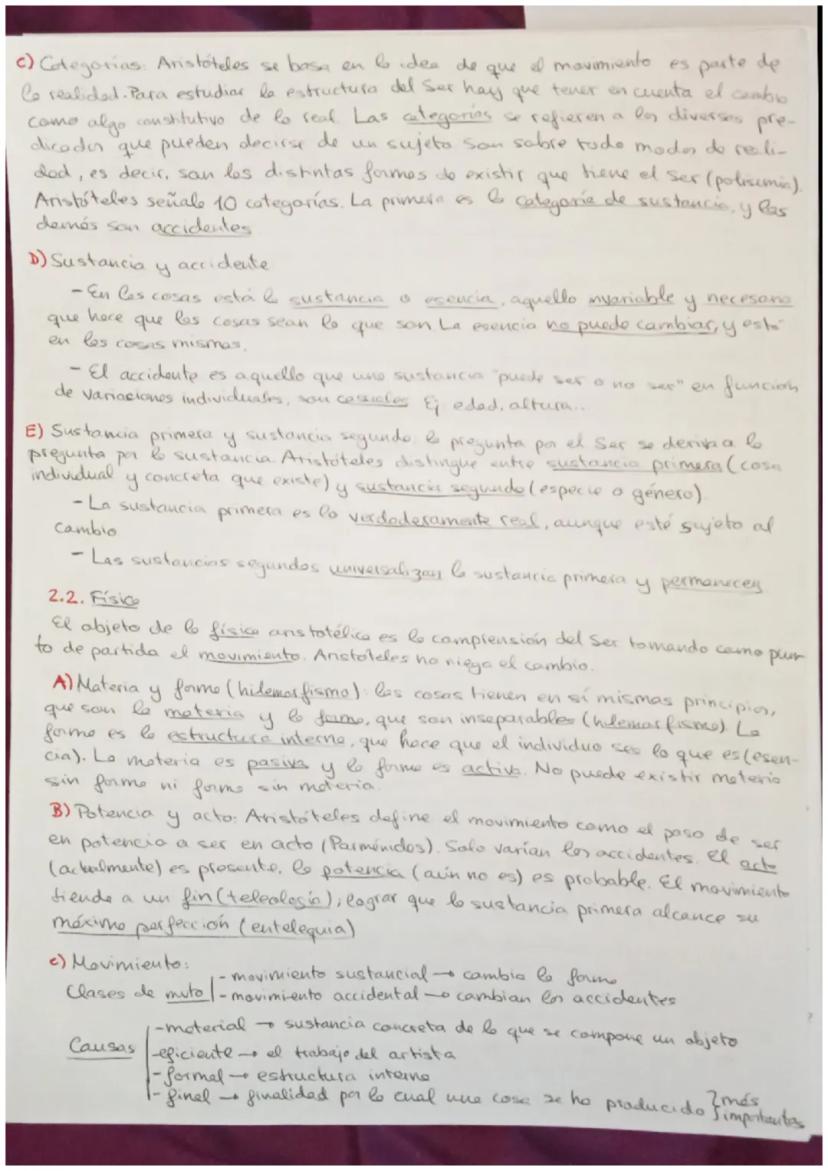 C) Categorías: Aristóteles se basa en la idea de que el movimiento es parte de
la realidad. Para estudiar la estructura del Ser hay que tener en cuenta el cambio
como algo constitutivo de lo real. Las categorías se refieren a los diversos pre-
dicados que pueden decirse de un sujeto son sobre todo modos de reali-
dad, es decir, son las distintas formas de existir que tiene el Ser (polisemia).
Aristóteles señala 10 categorías. La primera es la categoría de sustancia, y las
demás son accidentes
D) Sustancia y accidente
- En las cosas está la sustancia o esencia, aquello invariable y necesario
que hace que las cosas sean lo que son La esencia no puede cambiar, y está
en las cosas mismas.
- El accidente es aquello que una sustancia "puede ser o no ser" en función
de variaciones individuales, son casuales Ej edad, altura...
E) Sustancia primera y sustancia segunda: la pregunta por el Ser se deriva a la
pregunta por la sustancia Aristóteles distingue entre sustancia primera (cosa
individual y concreta que existe) y sustancia segunda (especie o género)
- La sustancia primera es lo verdaderamente real, aunque esté sujeto al
cambio
- Las sustancias segundas universalizan la sustancia primera y permanecen
2.2. Física
El objeto de la física aristotélica es la comprensión del Ser tomando como pun-
to de partida el movimiento. Aristóteles no niega el cambio.
A) Materia y forma (hilemorfismo): las cosas tienen en sí mismas principios,
que son la materia y la forma, que son inseparables (hilemorfismo). La
forma es la estructura interna, que hace que el individuo sea lo que es (esen-
cia). La materia es pasiva y la forma es activa. No puede existir materia
sin forma ni forma sin materia.
B) Potencia y acto: Aristóteles define el movimiento como el paso de ser
en potencia a ser en acto (Parménides). Solo varían los accidentes. El acto
(actualmente) es presente, la potencia (aún no es) es probable. El movimiento
tiende a un fin (teleología), lograr que la sustancia primera alcance su
máxima perfección (entelequia)
c) Movimiento:
- movimiento sustancial → cambia la forma
Clases de mvto - movimiento accidental → cambian los accidentes
- material → sustancia concreta de la que se compone un objeto
Causas - eficiente → el trabajo del artista
- formal → estructura interna
- final → finalidad por la cual una cosa se ha producido } más importantes